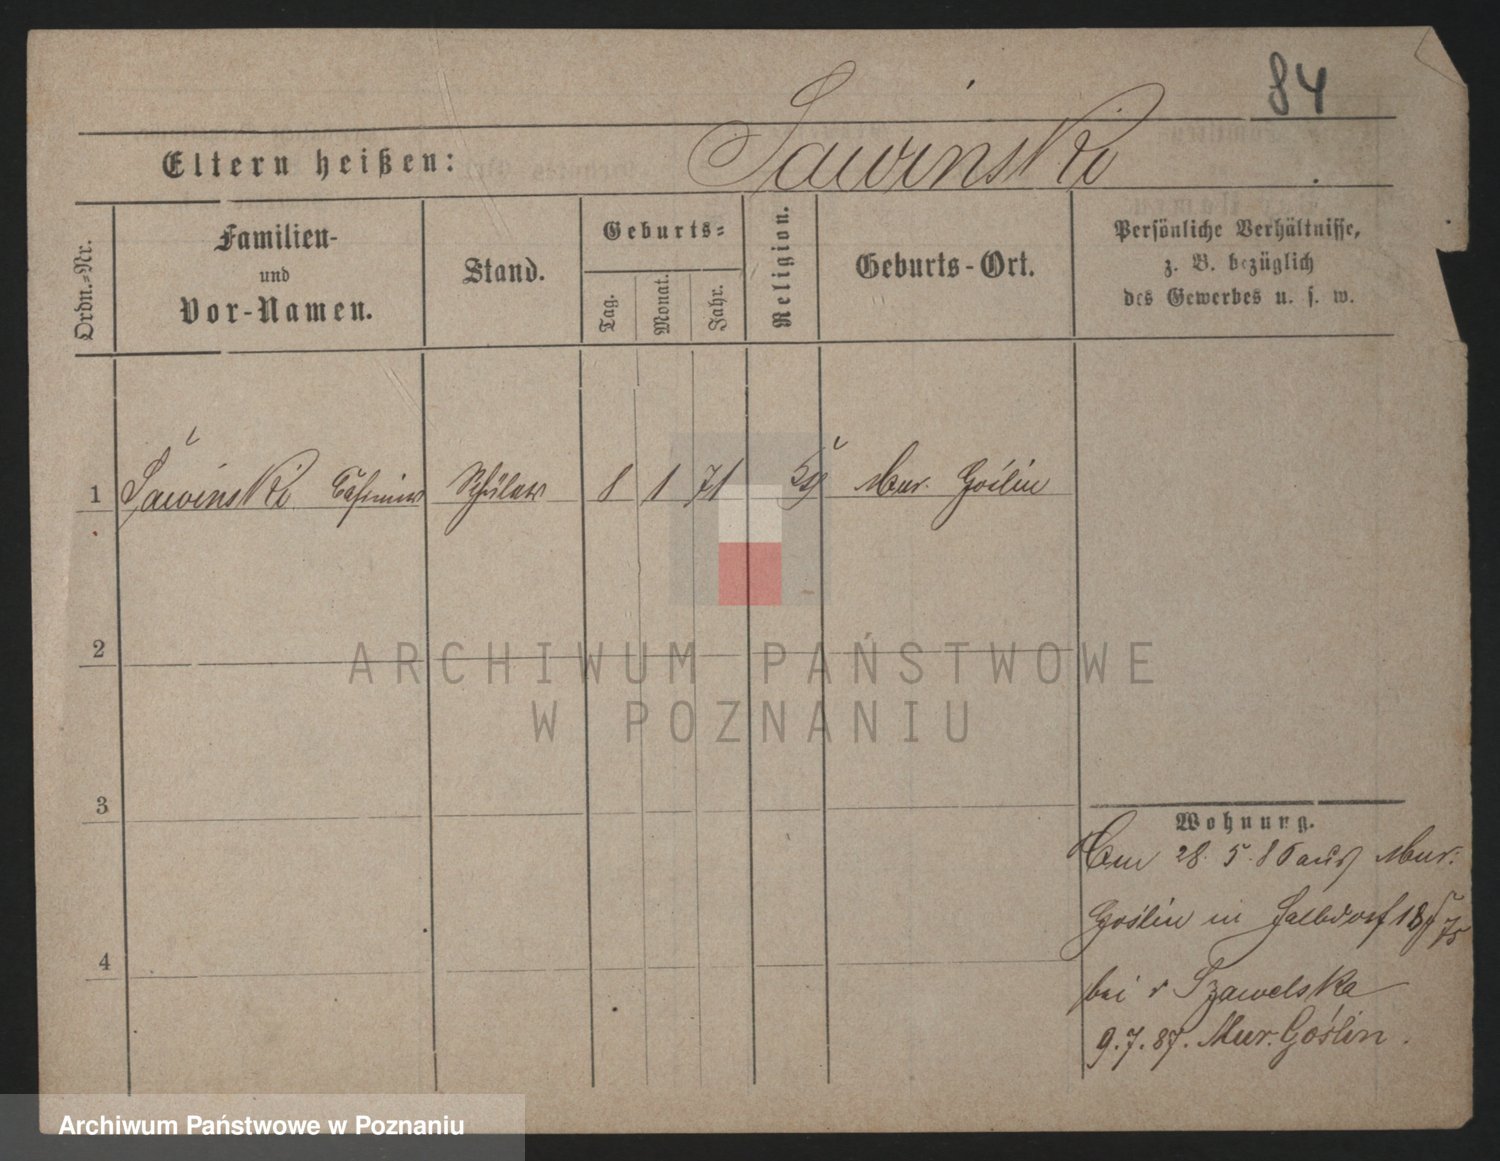 84
Eltern heißen: Sawinski
Ordn.-Nr.
Familien-
und
Vor-Namen.
Stand.
Geburts-
Tag.
Monat.
Jahr.
Religion.
Geburts-Ort.
Persönliche Verhältnisse,
z. B. bezüglich
des Gewerbes u. s. w.
1 Sawinski Casimir Schüler 8 1 71 Mur. Goślin
2
3
4
Wohnung.
Am 28. 5. 86 aus Mur.
Goślin in
bei
9. 7. 87. Mur. Goślin.
ARCHIWUM PAŃSTWOWE
W POZNANIU
Archiwum Państwowe w Poznaniu